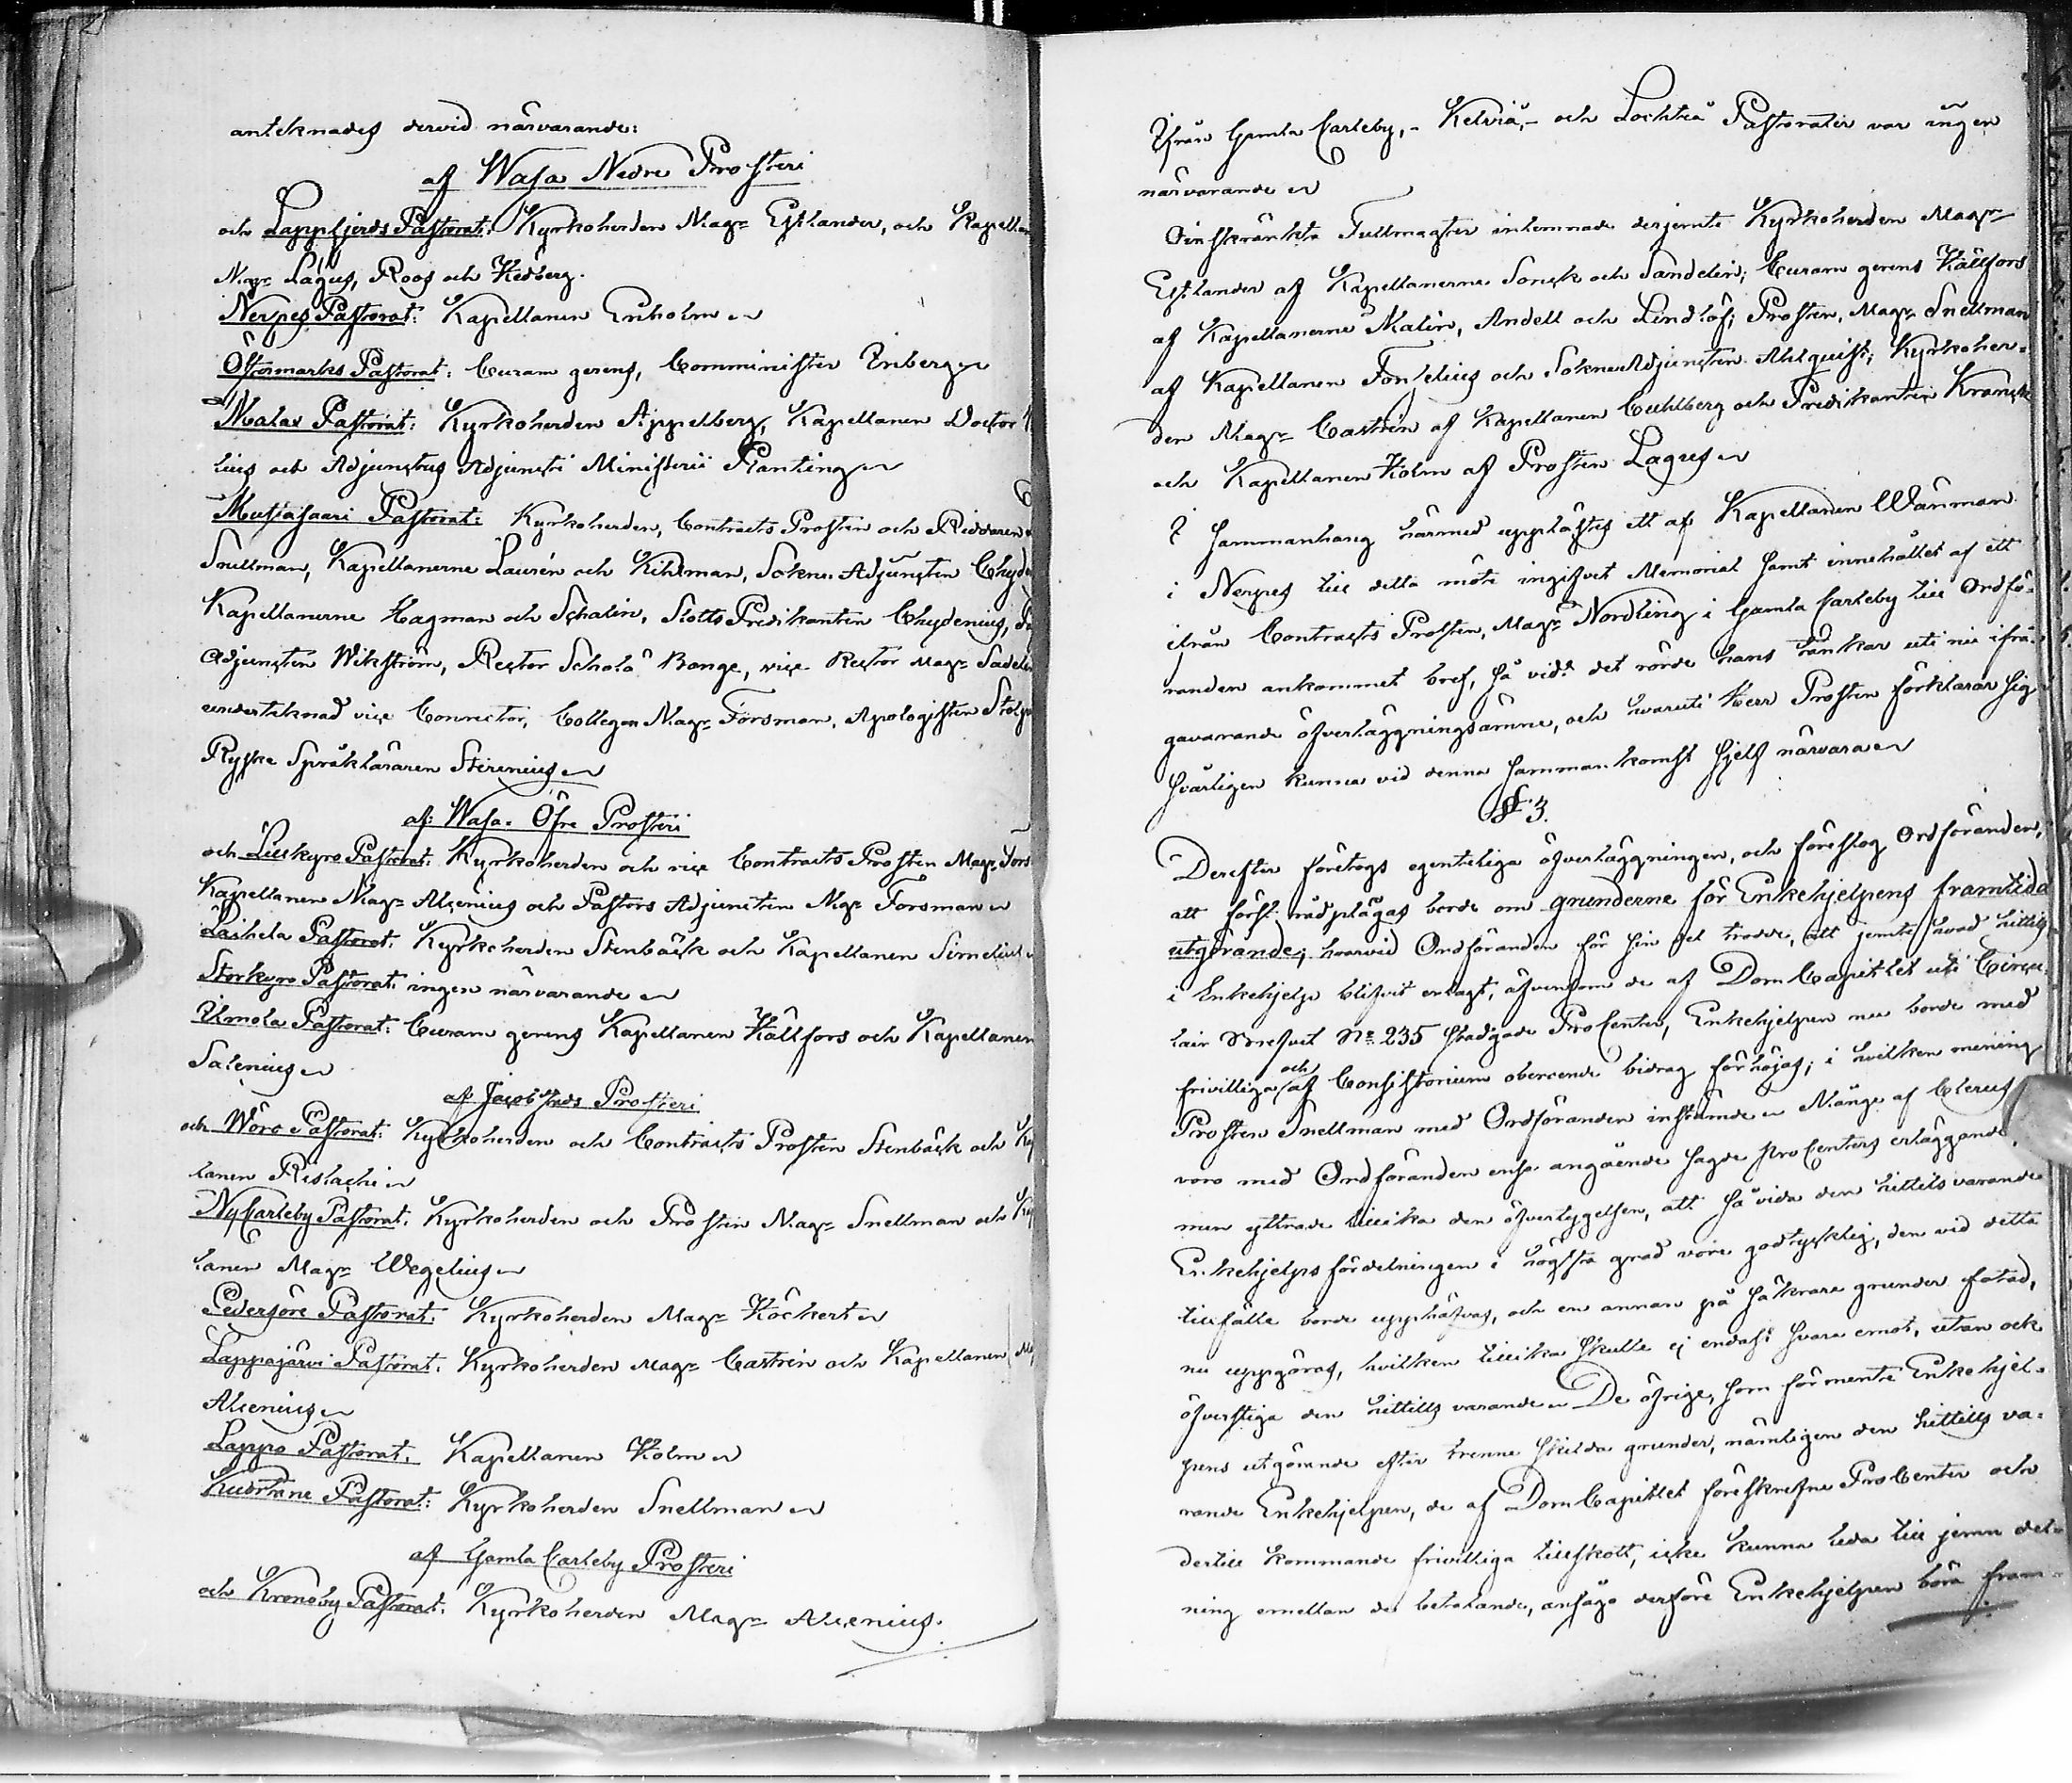 anteknades dervid närvarande:
af Wasa Nedre Prosteri
och Lappfjerds Pastorat: Kyrkoherden Magr Estlander, och Kapellan
Magr Lagus, Roos och Hedberg.
Nerpes Pastorat: Kapellanen Enholm
Östermarks Pastorat: Curam gerens, Comminister Enberg
Malax Pastorat: Kyrkoherden Appelberg, Kapellanen Doctor
lius och Adjunctus Adjuncti Ministerii Planting
Mustasaari Pastorat: Kyrkoherden, Contracts Prosten och Riddaren
Snellman, Kapellanerne Laurén och Kihlman, Sokne Adjuncten Chyde
Kapellanerne Hagman och Schalin, Slotts Predikanten Chydenius,
Adjuncten Wikström, Rector Scholæ Bange, vice Rector Magr Sadelin
undertecknad vice Conrector, Collegan Magr Forsman, Apologisten Stolpe
Ryske Språkläraren Sirenius
af Wasa Öfre Prosteri
och Lillkyro Pastorat: Kyrkoherden och vice Contracts Prosten Magr Fors
Kapellanen Magr Alcenius och Pastors Adjuncten Magr Forsman
Laihela Pastorat: Kyrkoherden Stenbäck och Kapellanen Simelius
Storkyro Pastorat: ingen närvarande
Ilmola Pastorat: Curam gerens Kapellanen Källfors och Kapellanen
Salenius
af Jacobstads Prosteri
och Wörå Pastorat: Kyrkoherden och Contracts Prosten Stenbäck och Ka
lanen Rislachi
NyCarleby Pastorat: Kyrkoherden och Prosten Magr Snellman och Ka
lanen Magr Wegelius
Pedersöre Pastorat: Kyrkoherden Magr Höckert
Lappajärvi Pastorat: Kyrkoherden Magr Castrén och Kapellanen M
Alcenius
Lappo Pastorat: Kapellanen Holm
Kuortane Pastorat: Kyrkoherden Snellman
af Gamla Carleby Prosteri
och Kronoby Pastorat: Kyrkoherden Magr Alcenius.
Ifrån Gamla Carleby,- Kelviå,- och Lochteå Pastorater var ingen
närvarande
Oinskränkta Fullmagter inlemnade derjemte Kyrkoherden Magr
Estlander af Kapellanerne Sonck och Sandelin; Curam gerens Källfors
af Kapellanerne Malin, Andell och Lindlöf; Prosten, Magr Snellman
af Kapellanen Fonselius och Sokne Adjuncten Ahlquist; Kyrkoher-
den Magr Castrén af Kapellanen Cuhlberg och Predikanten Kranck
och Kapellanen Holm af Prosten Lagus
I sammanhang härmed upplästes ett af Kapellanen Wänman
i Nerpes till detta möte ingifvet Memorial samt innehållet af ett
ifrån Contracts Prosten, Magr Nordling i Gamla Carleby till Ordfö-
randen ankommet bref, så vidt det rörde hans tankar uti nu ifrå-
gavarande öfverläggningsämne, och hvaruti Herr Prosten förklarar sig
svårligen kunna vid denna sammankomst sjelf närvara
§ 3.
Derefter företogs egentliga öfverläggningen, och föreslog Ordföranden,
att först rådplägas borde om grunderne för Enkehjelpens framtida
utgörande; hvarvid Ordföranden för sin del trodde, att jemte hvad hittils
i Enkehjelp blifvit erlagt, äfvensom de af DomCapitlet uti Circu-
lair Brefvet No 235 stadgade ProCenter, Enkehjelpen nu borde med
frivilliga och af Consistorium oberoende bidrag förhöjas; i hvilken mening
Prosten Snellman med Ordföranden instämde Månge af Clerus
voro med Ordföranden ense angående sagde ProCenters erläggande,
men yttrade tillika den öfvertygelsen, att så vida den hittils varande
Enkehjelps fördelningen i högsta grad vore godtycklig, den vid detta
tillfälle borde upphäfvas, och en annan på säkrare grunder fotad,
nu uppgöras, hvilken tillika skulle ej endast svara emot, utan ock
öfverstiga den hittills varande De öfrige, som förmente Enkehjel-
pens utgörande efter trenne skilda grunder, nämligen den hittills va-
rande Enkehjelpen, de af DomCapitlet föreskrefne ProCenter och
dertill kommande frivilliga tillskott, icke kunna leda till jemn del-
ning emellan de betalande, ansågo derföre Enkehjelpen böra fram-